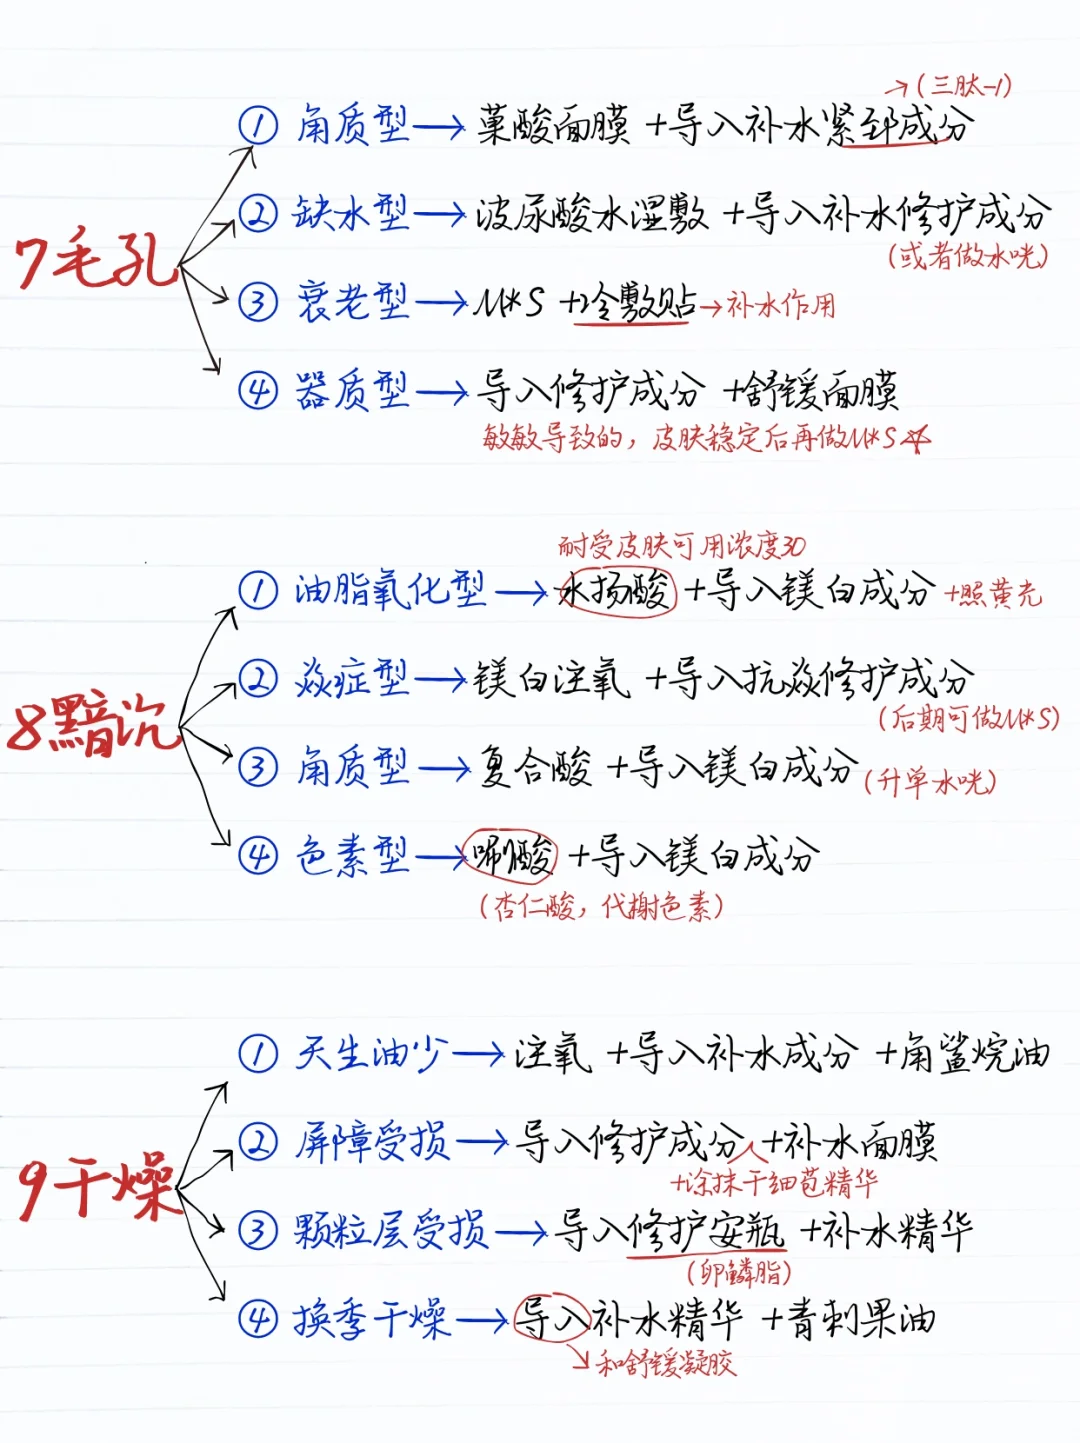 →(三肽-1)
① 角质型→菓酸面膜+导入补水紧致成分
② 缺水型→波尿酸水湿敷+导入补水修护成分
7毛孔
(或者做水咣)
③ 衰老型→M*S+冷敷贴→补水作用
④ 器质型→导入修护成分+舒缓面膜
敏敏导致的，皮肤稳定后再做M*S☆
耐受皮肤可用浓度30
① 油脂氧化型→水扬酸+导入镁白成分+照黄光
② 焱症型→镁白注氧+导入抗焱修护成分
8黯沉
(后期可做M*S)
③ 角质型→复合酸+导入镁白成分(升单水咣)
④ 色素型→唰酸+导入镁白成分
(杏仁酸，代榭色素)
① 天生油少→注氧+导入补水成分+角鲨烷油
② 屏障受损→导入修护成分+补水面膜
9干燥
+涂抹干细苞精华
③ 颗粒层受损→导入修护安瓶+补水精华
(卵鳞脂)
④ 换季干燥→导入补水精华+青刺果油
和舒缓凝胶